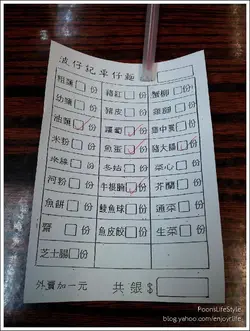 波仔記車仔麵
粗麵 份 豬紅 份 蟹柳 份
幼麵 份 豬皮 份 份
油麵 份 蘿蔔 份 份
米粉 份 魚蛋 份 豬大腸 份
米線 份 冬菇 份 菜心 份
河粉 份 牛根腩 份 芥蘭 份
魚餅 份 鯪魚球 份 通菜 份
份 魚皮餃 份 生菜 份
芝士腸 份
外賣加一元 共銀$
PoonsLifeStyle
blog.yahoo.com/enjoyrlife